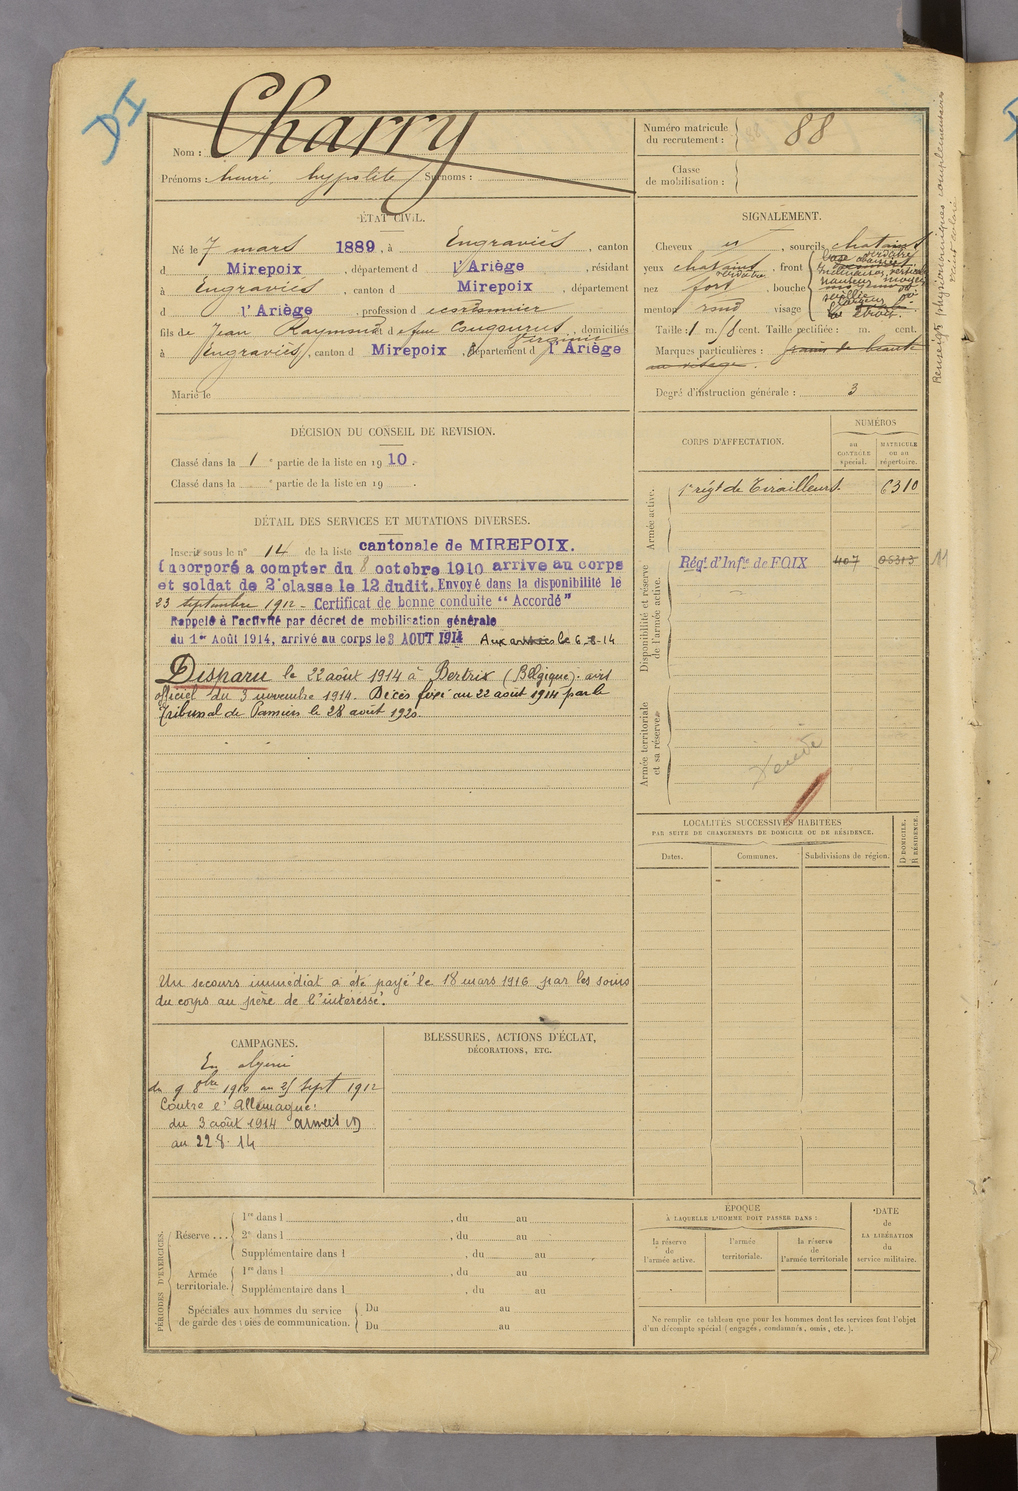 DI
Nom : Charry
Prénoms : henri, hypolite Surnoms :
Numéro matricule
du recrutement : 88
Classe
de mobilisation :
ÉTAT CIVIL.
Né le 7 mars 1889, à Engraviès, canton
d Mirepoix, département d l'Ariège, résidant
à Engraviès, canton d Mirepoix, département
d l'Ariège, profession d
fils de Jean Raymond et d feue Virginie, domiciliés
à Engraviès, canton d Mirepoix, département d l'Ariège
Marié le
SIGNALEMENT.
Cheveux et, sourcils chatains
yeux chatains verdatre, front
nez fort, bouche
menton rond visage
Taille : 1 m. 58 cent. Taille rectifiée : m. cent.
Marques particulières : grain de beauté
au visage.
Degré d'instruction générale : 3
Renseigts physionomiques complémentaires
DÉCISION DU CONSEIL DE REVISION.
Classé dans la 1e partie de la liste en 1910.
Classé dans la e partie de la liste en 19 .
DÉTAIL DES SERVICES ET MUTATIONS DIVERSES.
Inscrit sous le n° 14 de la liste cantonale de MIREPOIX.
Incorporé a compter du 8 octobre 1910 arrive au corps
et soldat de 2e classe le 12 dudit. Envoyé dans la disponibilité le
23 septembre 1912 - Certificat de bonne conduite "Accordé"
Rappelé à l'activité par décret de mobilisation générale
du 1er Août 1914, arrivé au corps le 3 AOUT 1914 Aux armées le 6-8-14
Disparu le 22 août 1914 à Bertrix (Belgique). avis
officiel du 3 novembre 1914. Décès fixé au 22 août 1914 par le
Tribunal de Pamiers le 28 août 1920.
Un secours immédiat a été payé le 18 mars 1916 par les soins
du corps au père de l'intéressé.
CORPS D'AFFECTATION.
NUMÉROS
au
CONTRÔLE
spécial.
MATRICULE
ou au
répertoire.
Armée active.
1er régt de Tirailleurs. 6310
Disponibilité et réserve
de l'armée active.
Régt d'Infie de FOIX 407 05313
Armée territoriale
et sa réserve.
LOCALITÉS SUCCESSIVES HABITÉES
PAR SUITE DE CHANGEMENTS DE DOMICILE OU DE RÉSIDENCE.
Dates.
Communes.
Subdivisions de région.
D DOMICILE.
R RÉSIDENCE.
CAMPAGNES.
En algérie
du 9 8bre 1910 au 25 Sept 1912
Contre l'Allemagne:
du 3 août 1914
au 22 8. 14
BLESSURES, ACTIONS D'ÉCLAT,
DÉCORATIONS, ETC.
PÉRIODES D'EXERCICES.
Réserve ...
1re dans l , du au
2e dans l , du au
Supplémentaire dans l , du au
Armée
territoriale.
1re dans l , du au
Supplémentaire dans l , du au
Spéciales aux hommes du service
de garde des voies de communication.
Du au
Du au
ÉPOQUE
À LAQUELLE L'HOMME DOIT PASSER DANS :
la réserve
de
l'armée active.
l'armée
territoriale.
la réserve
de
l'armée territoriale
DATE
de
LA LIBÉRATION
du
service militaire.
Ne remplir ce tableau que pour les hommes dont les services font l'objet
d'un décompte spécial (engagés, condamnés, omis, etc.).